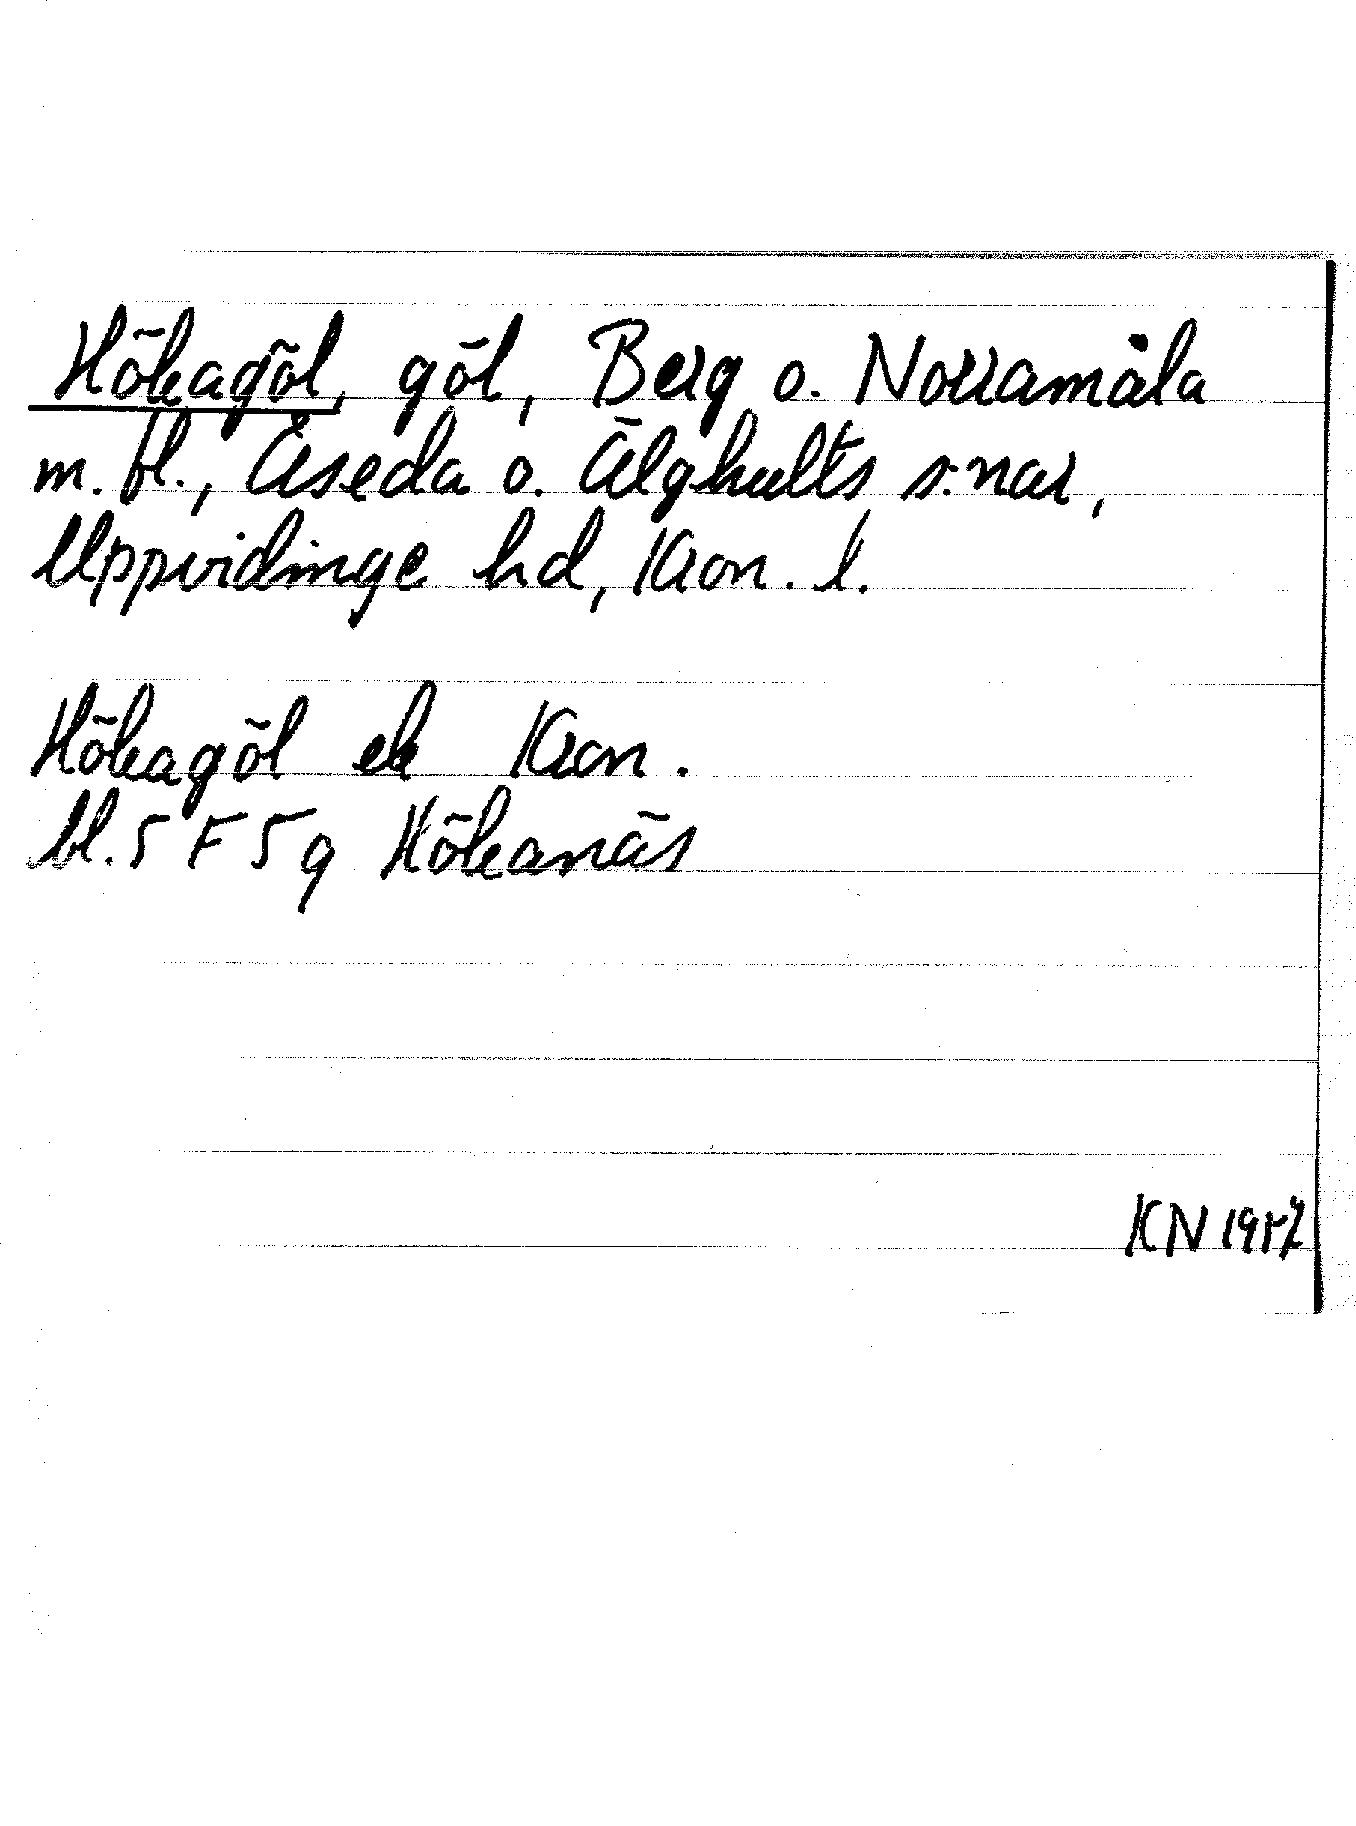 Hökagöl, göl, Berg o. Norramåla
m. fl., Åseda o. Älghults s:nar,
Uppvidinge hd, Kron. l.
Hökagöl ek Kron.
bl. 5 F 5 g Hökanäs
KN 1957